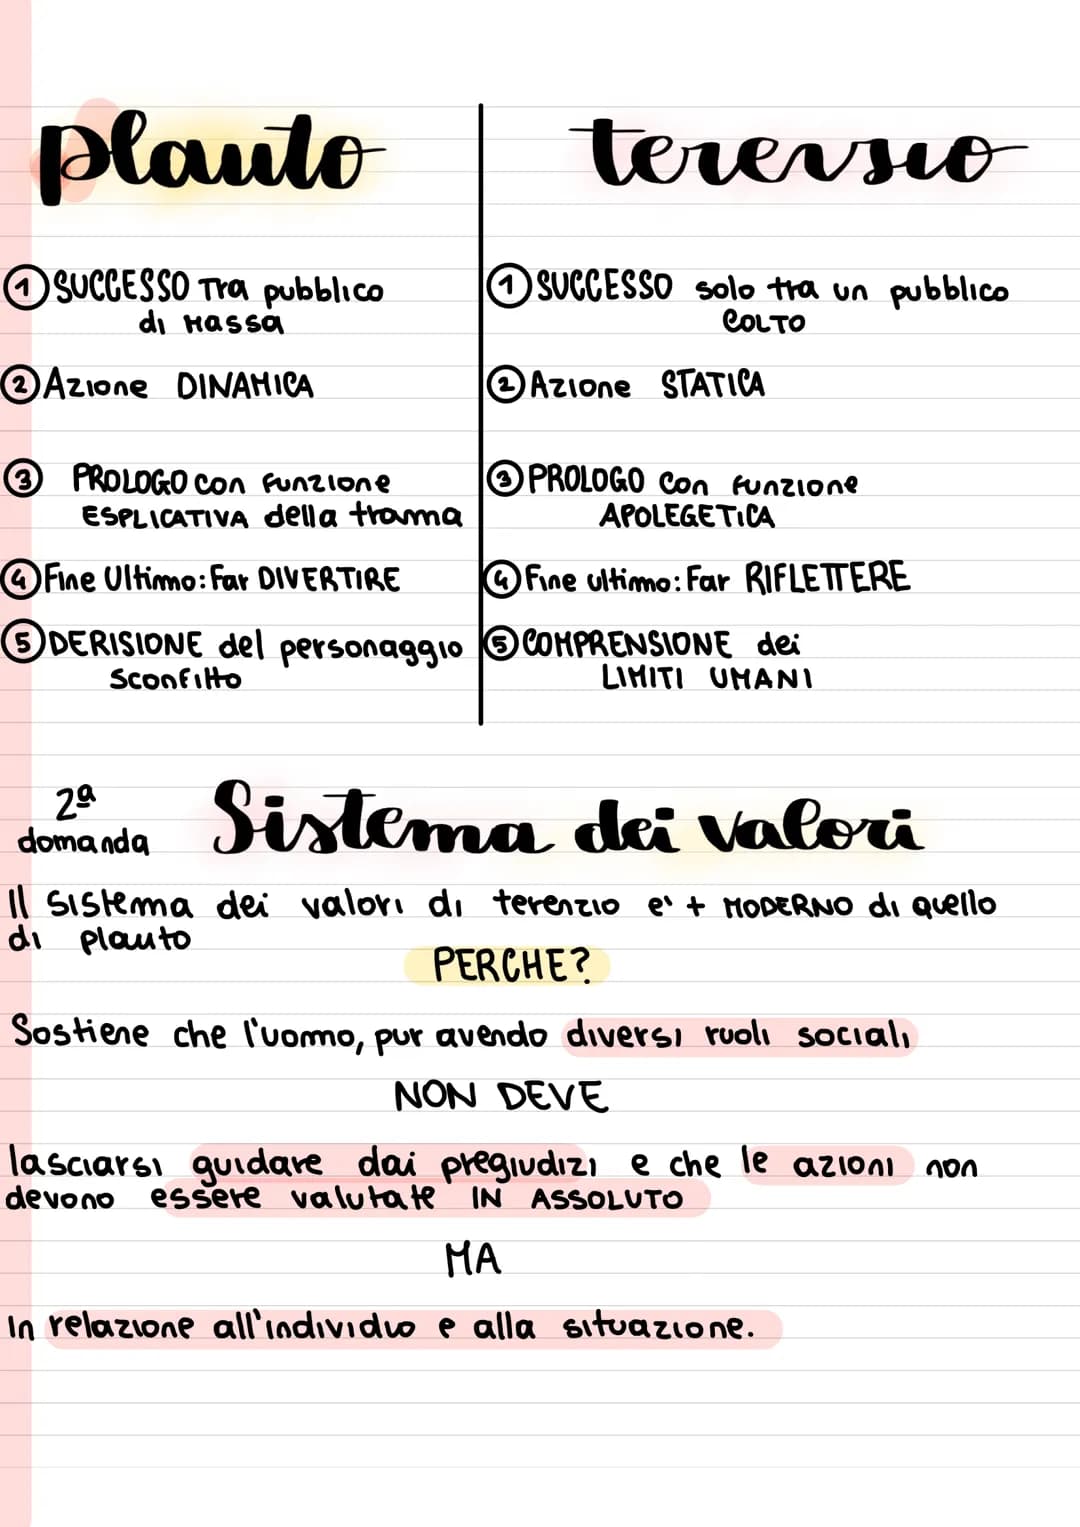 plauto
① SUCCESSO Tra pubblico
di Massa
② Azione DINAMICA
③ PROLOGO con funzione
ESPLICATIVA della trama
④ Fine Ultimo: Far DIVERTIRE
⑤ DERISIONE del personaggio
sconfitto
terenzio
① SUCCESSO solo tra un pubblico
COLTO
② Azione STATICA
③ PROLOGO con funzione
APOLEGETICA
④ Fine ultimo: Far RIFLETTERE
⑤ COMPRENSIONE dei
LIMITI UMANI
2ª
domanda
Sistema dei valori
Il sistema dei valori di terenzio e' + MODERNO di quello
di plauto
PERCHE?
Sostiene che l'uomo, pur avendo diversi ruoli sociali
NON DEVE
lasciarsi guidare dai pregiudizi e che le azioni non
devono essere valutate IN ASSOLUTO
MA
In relazione all'individuo e alla situazione.